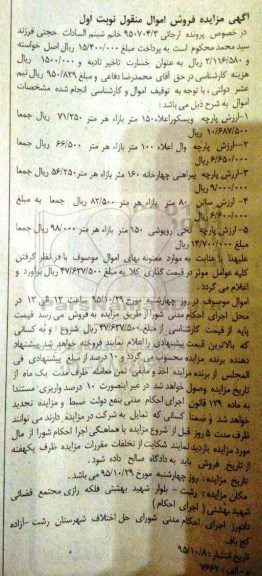 آگهی مزایده فروش اموال منقول نوبت اول
در خصوص پرونده اجرائی ۹۵۰۷۰۴/۳ خانم شبنم السادات حجتی فرزند
سید محمد محکوم است به پرداخت مبلغ ۱۵/۴۰۰/۰۰۰ ریال اصل خواسته
و ۲/۱۱۶/۵۸۰ ریال به عنوان خسارت تاخیر تادیه و ۱۵۰۰/۰۰۰ ریال
هزینه کارشناسی در حق آقای محمدرضا دفاعی و مبلغ ۹۵۰/۸۲۹ ریال نیم
عشر دولتی ، با توجه به توقیف اموال و کارشناسی انجام شده مشخصات
اموال به شرح ذیل می باشد :
۱-ارزش پارچه ویسکوراعلا ۱۵۰ متر بازاء هر متر ۷۱/۲۵۰ ریال جمعا
۱۰/۶۸۷/۵۰۰ ریال
۲-ارزش پارچه وال اعلاء ۱۰۰ متر بازاء هر متر ۶۶/۵۰۰ ریال جمعا
۶/۶۵۰/۰۰۰ ریال
۳-ارزش پارچه پیراهنی چهارخانه ۱۶۰ متر بازاء هر متر ۵۶/۲۵۰ ریال جمعا
۹/۰۰۰/۰۰۰ ریال
۴- ارزش ساتن ۸۰ متر بازاء هر متر ۸۲/۵۰۰ ریال جمعا به مبلغ
۶/۶۰۰/۰۰۰ ریال
۵- ارزش پارچه نخی روپوشی ۱۵۰ متر بازاء هر متر ۹۸/۰۰۰ ریال جمعا
مبلغ ۱۴/۷۰۰/۰۰۰ ریال
علیهذا با عنایت به موارد معنونه بهای اموال موصوف با در نظر گرفتن
کلیه عوامل موثر در قیمت گذاری کلا به مبلغ ۴۷/۶۳۷/۵۰۰ ریال برآورد و
اعلام می گردد .
اموال موصوف در روز چهارشنبه مورخ ۹۵/۱۰/۲۹ ساعت ۱۲ الی ۱۳ در
محل اجرای احکام مدنی شورا از طریق مزایده به فروش می رسد قیمت
پایه از قیمت کارشناسی از مبلغ ۴۷/۶۳۷/۵۰۰ ریال شروع و به کسانی
که بالاترین قیمت پیشنهادی را اعلام نمایند فروخته خواهد شد پیشنهاد
دهنده برنده مزایده محسوب می گردد و ۱۰ درصد از مبلغ پیشنهادی فی
المجلس از برنده مزایده اخذ و مابقی ثمن معامله ظرف مدت یک ماه از
تاریخ مزایده وصول خواهد شد در غیر اینصورت ۱۰ درصد واریزی مستندا
به ماده ۱۲۹ قانون اجرای احکام مدنی بنفع دولت ضبط و مزایده تجدید
خواهد شد و ضمنا کسانی که تمایل به شرکت در مزایده دارند می توانند
ظرف مدت ۵ روز قبل از شروع مزایده با هماهنگی اجرا احکام شورا از مال
مورد مزایده بازدید نمایند شکایت از تخلفات مقررات مزایده ظرف یکهفته
از تاریخ فروش باید به دادگاه صالح داده شود .
تاریخ مزایده : روز چهارشنبه مورخ ۹۵/۱۰/۲۹ می باشد .
مکان مزایده : رشت - بلوار شهید بهشتی فلکه رازی مجتمع قضائی
شهید بهشتی ( اجرای احکام )
دادورز اجرای احکام مدنی شورای حل اختلاف شهرستان رشت -آزاده
گنج باف
تاریخ انتشار : ۹۵/۱۰/۸
م - الف : ۷۶۶۲